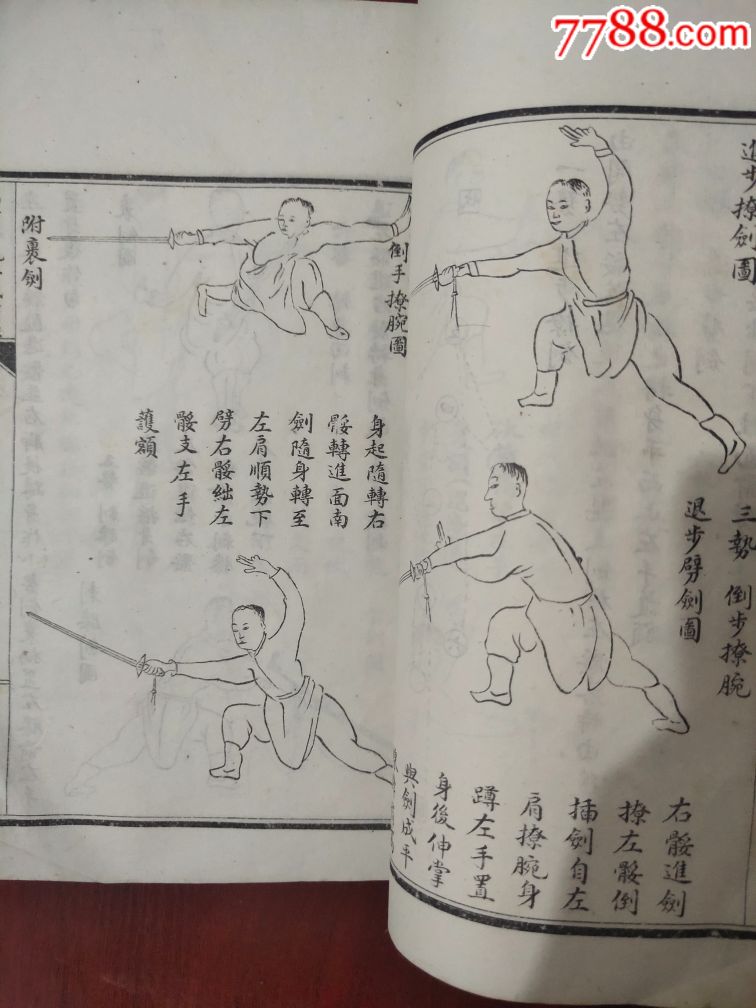 7788.com
進步撩劍圖
三勢 倒步撩腕
退步劈劍圖
右骽進劍
撩左骽倒
插劍自左
肩撩腕身
蹲左手置
身後伸掌
與劍成平
倒手撩腕圖
身起隨轉右
骽轉進面南
劍隨身轉至
左肩順勢下
劈右骽絀左
骽支左手
護額
附裏劍